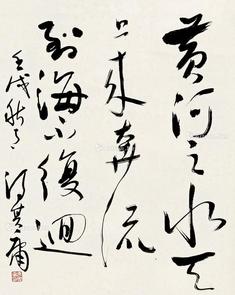 黄河之水天
上来奔流
到海不復迴
壬戌秋月
冯其庸